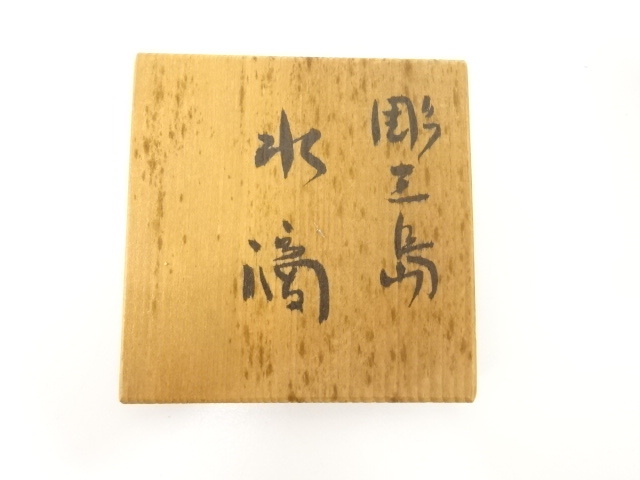 彫三島
水滴